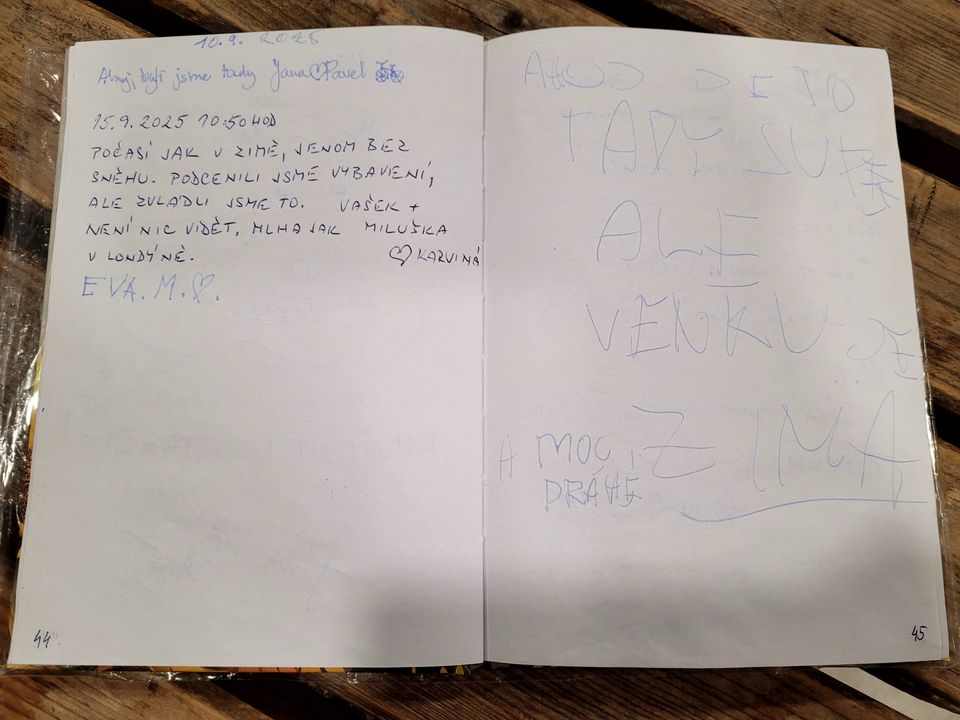 10.9. 2025
Ahoj, byli jsme tady Jana♡Pavel
15.9.2025 10:50 HOD
POČASÍ JAK V ZIMĚ, JENOM BEZ
SNĚHU. PODCENILI JSME VYBAVENÍ,
ALE ZVLÁDLI JSME TO. VAŠEK +
NENÍ NIC VIDĚT, MLHA JAK MILUŠKA
V LONDÝNĚ. ♡ KARVINÁ
EVA. M.♡.
44
AHOJ JE TO
TADY SUPR
ALE
VENKU JE
ZIMA
A MOC
DRAHÉ
45